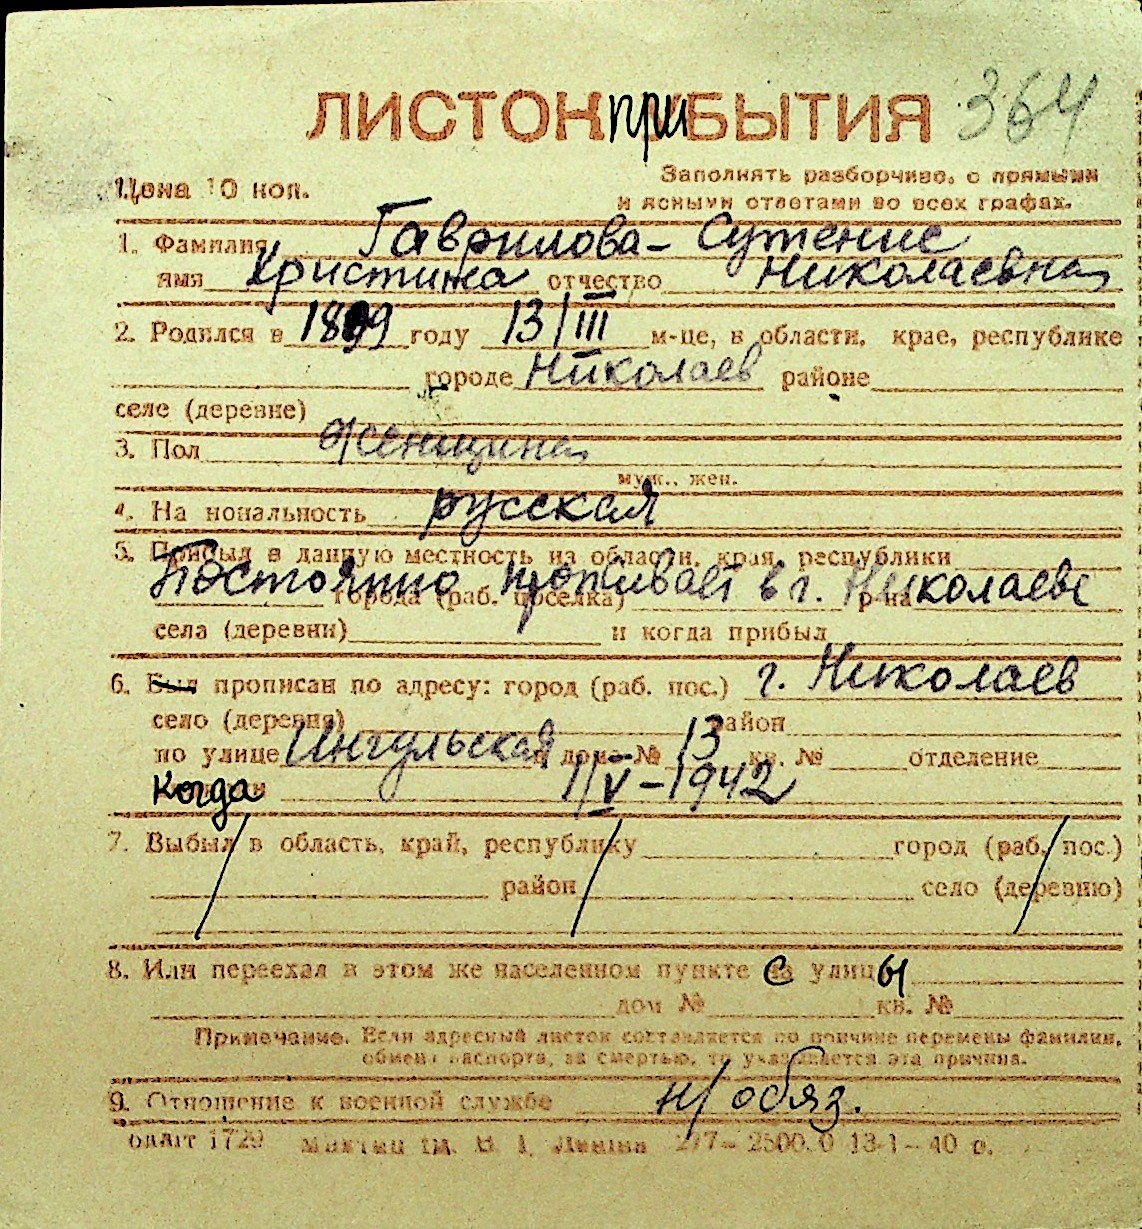 ЛИСТОК ПРИБЫТИЯ 364
Цена 10 коп.
Заполнять разборчиво, с прямыми
и ясными ответами во всех графах.
1. Фамилия Гаврилова-Сутение
имя Христина отчество Николаевна
2. Родился в 1899 году 13/III м-це, в области, крае, республике
городе Николаев районе
селе (деревне)
3. Пол Женщина
муж., жен.
4. На нональность русская
5. Прибыл в данную местность из области, края, республики
Постоянно проживает в г. Николаеве
города (раб. поселка) р-на
села (деревни) и когда прибыл
6. Был прописан по адресу: город (раб. пос.) г. Николаев
село (деревня) район
по улице Ингульская дом № 13 кв. № отделение
когда 1/V-1942
7. Выбыл в область, край, республику город (раб. пос.)
район село (деревню)
8. Или переехал в этом же населенном пункте с улицы
дом № кв. №
Примечание. Если адресный листок составляется по причине перемены фамилии,
обмена паспорта, за смертью, то указывается эта причина.
9. Отношение к военной службе н/обяз.
1729 им. В. И. Ленина 277-2500.0 13-1-40 р.